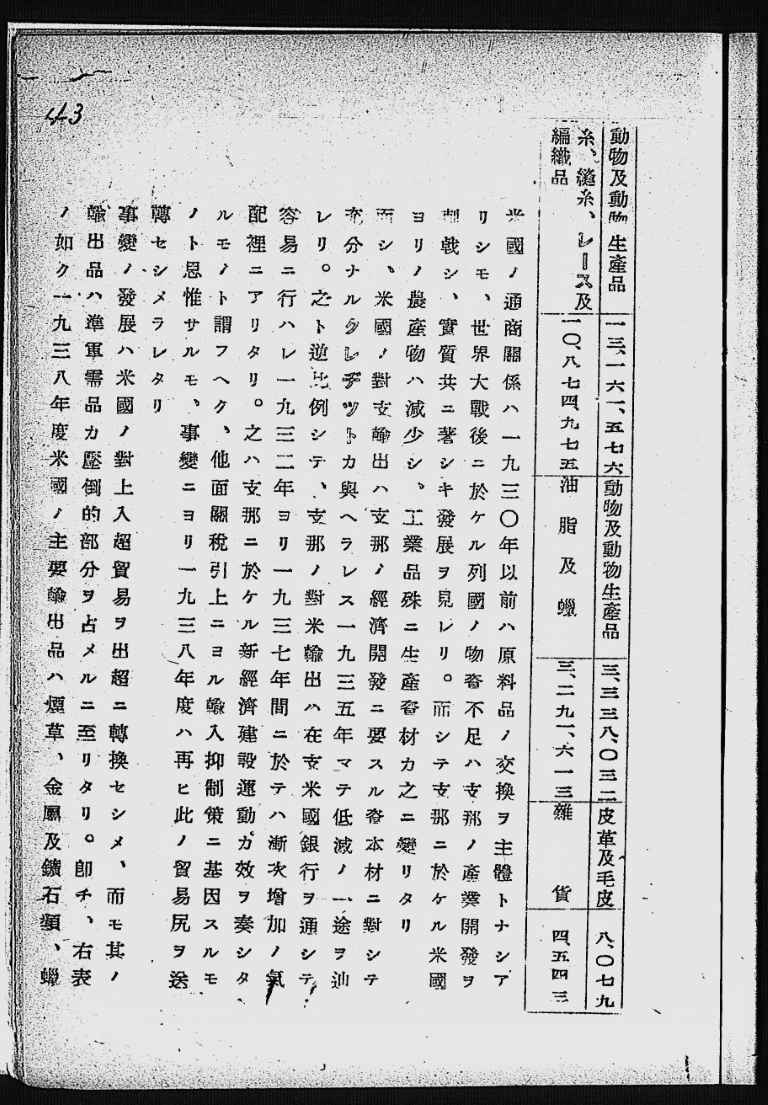 動物及動物生產品 一三、一六一、五七六 動物及動物生產品 三、三三八、〇三二 皮革及毛皮 八、〇七九
糸、縫糸、レース及編織品 一〇、八七四、九七五 油脂及蠟 三、二九一、六一三 雜貨 四、五四三
米國ノ通商關係ハ一九三〇年以前ハ原料品ノ交換ヲ主體トナシア
リシモ、世界大戰後ニ於ケル列國ノ物資不足ハ支那ノ產業開發ヲ
刺戟シ、實質共ニ著シキ發展ヲ見レリ。而シテ支那ニ於ケル米國
ヨリノ農產物ハ減少シ、工業品殊ニ生產資材カ之ニ變リタリ
而シ、米國ノ對支輸出ハ支那ノ經濟開發ニ要スル資本材ニ對シテ
充分ナルクレヂツトカ與ヘラレス一九三五年マテ低減ノ一途ヲ辿
レリ。之ト逆比例シテ、支那ノ對米輸出ハ在支米國銀行ヲ通シテ
容易ニ行ハレ一九三二年ヨリ一九三七年間ニ於テハ漸次增加ノ氣
配裡ニアリタリ。之ハ支那ニ於ケル新經濟建設運動カ效ヲ奏シタ
ルモノト謂フヘク、他面關稅引上ニヨル輸入抑制策ニ基因スルモ
ノト思惟サルモ、事變ニヨリ一九三八年度ハ再ヒ此ノ貿易尻ヲ送
轉セシメラレタリ
事變ノ發展ハ米國ノ對上入超貿易ヲ出超ニ轉換セシメ、而モ其ノ
輸出品ハ準軍需品カ壓倒的部分ヲ占メルニ至リタリ。卽チ、右表
ノ如ク一九三八年度米國ノ主要輸出品ハ煙草、金屬及鑛石類、蠟
43